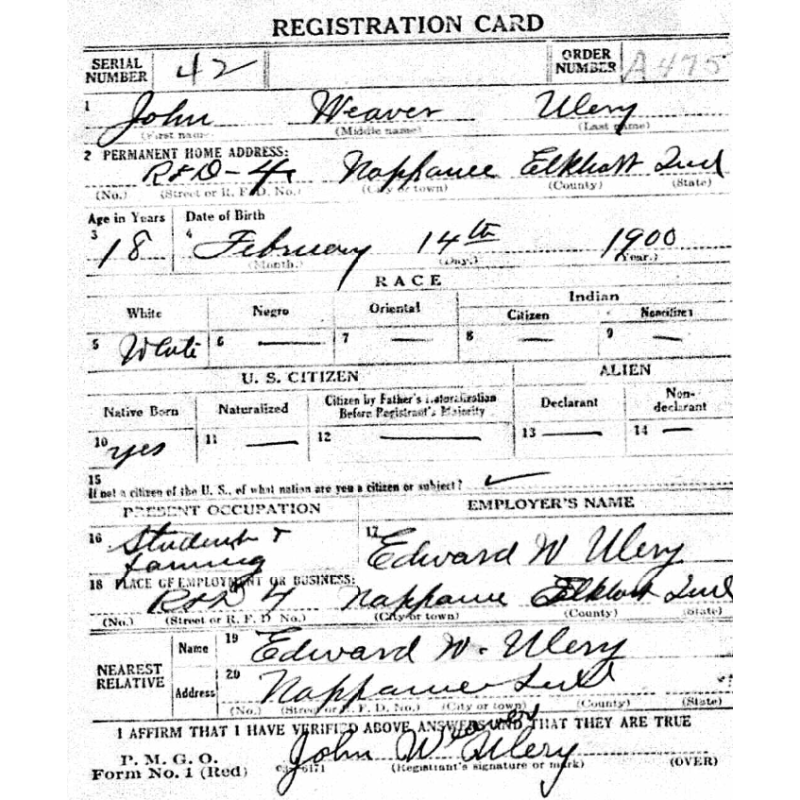 REGISTRATION CARD
SERIAL NUMBER 42 ORDER NUMBER A475
1 John Weaver Ulery
(First name) (Middle name) (Last name)
2 PERMANENT HOME ADDRESS:
R&D-4 Nappanee Elkhart Ind
(No.) (Street or R. F. D. No.) (City or town) (County) (State)
Age in Years Date of Birth
3 18 4 February 14th 1900
(Month.) (Day.) (Year.)
RACE
White Negro Oriental Indian
Citizen Noncitizen
5 White 6 — 7 — 8 — 9 —
U. S. CITIZEN ALIEN
Native Born Naturalized Citizen by Father's Naturalization Before Registrant's Majority Declarant Non-declarant
10 yes 11 — 12 — 13 — 14 —
15
If not a citizen of the U. S., of what nation are you a citizen or subject? ✓
PRESENT OCCUPATION EMPLOYER'S NAME
16 Student & 17 Edward W Ulery
faming
18 PLACE OF EMPLOYMENT OR BUSINESS:
R&D 4 Nappanee Elkhart Ind
(No.) (Street or R. F. D. No.) (City or town) (County) (State)
NEAREST RELATIVE
Name 19 Edward W. Ulery
Address 20 Nappanee Ind
(No.) (Street or R. F. D. No.) (City or town) (County) (State)
I AFFIRM THAT I HAVE VERIFIED ABOVE ANSWERS AND THAT THEY ARE TRUE
P. M. G. O.
Form No. 1 (Red) John Weaver Ulery
(Registrant's signature or mark) (OVER)